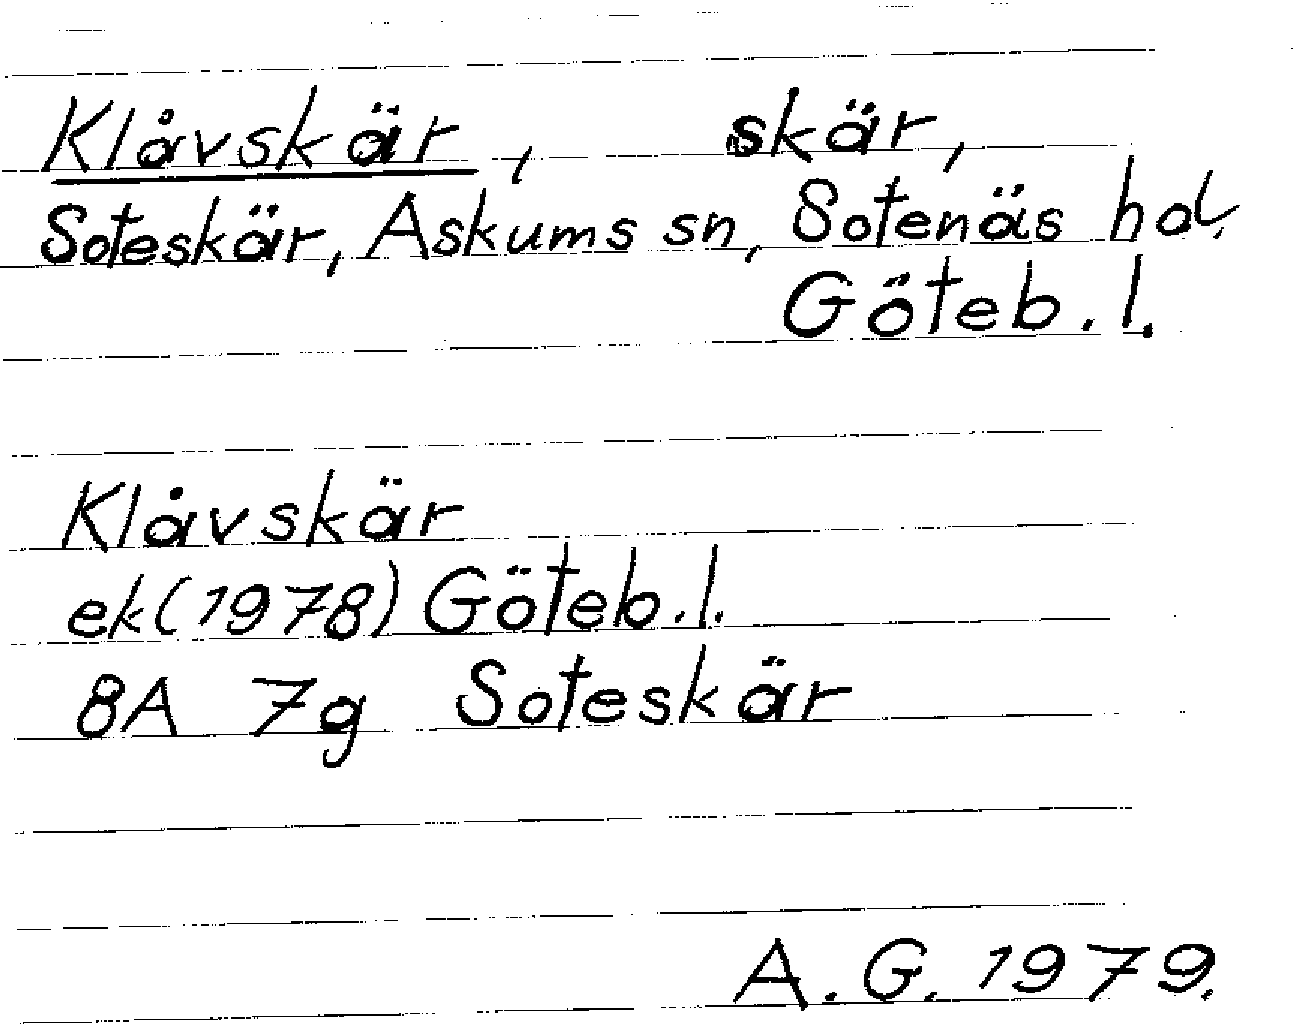 Klåvskär, skär,
Soteskär, Askums sn, Sotenäs hd.
Göteb. l.
Klåvskär
ek (1978) Göteb. l.
8A 7g Soteskär
A. G. 1979.